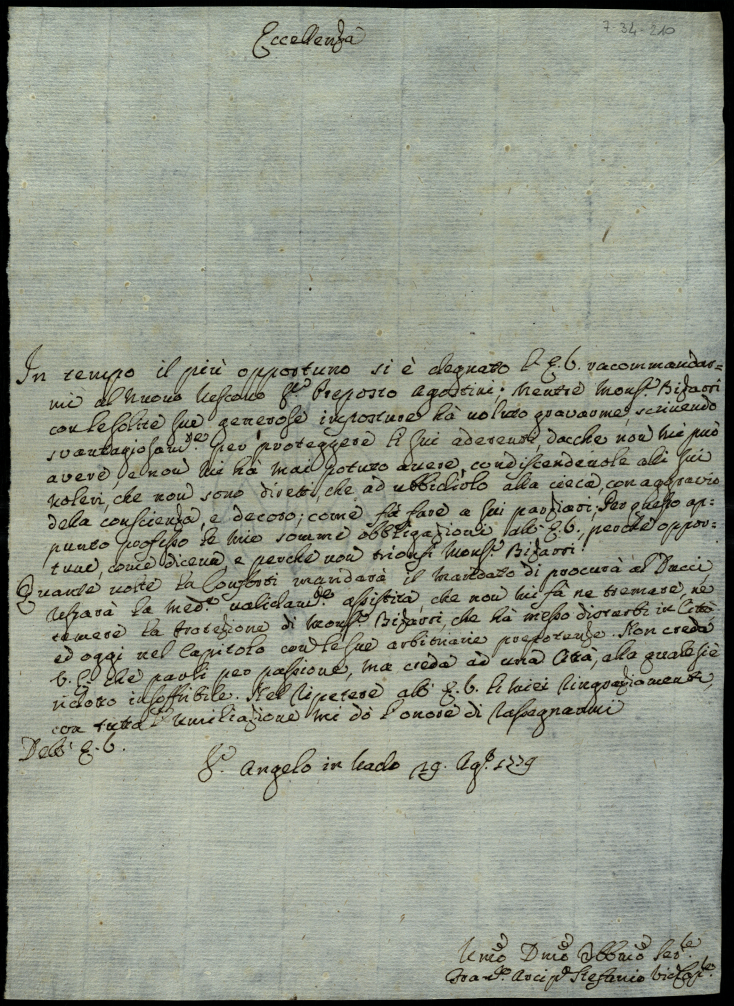 7-34-210
Eccellenza
In tempo il più opportuno si è degnato l'E.V. raccommandar=
mi al nuovo Vescovo Sr. Preposto Agostini; Mentre Monsr. Bizarri
con le solite sue generose imposture hà voluto gravarme, scrivendo
svantagiosamte. per proteggere li suoi aderenti, dacche non mi può
avere, e non mi ha mai potuto avere, condiscendevole alli suoi
voleri, che non sono diretti, che ad ubbidirlo alla cieca, con aggravio
della conscienza, e decoro; come fà fare a suoi parziari. Per questo ap=
punto professo le mie somme obbligazioni all'E.V., perche oppor=
tune, come diceva, e perche non trionfi Monsr. Bizarri.
Quante volte la Conforti mandarà il mandato di procura al Ducci,
restarà la medª. validamte. assistita che non mi fà ne tremare, ne
temere la protezione di Monsr. Bizarri, che hà messo disturbi in Città
ed oggi nel Capitolo con le sue arbitrarie prepotenze. Non creda
V.E. che parli per passione, ma creda ad una Città, alla quale si è
ridotto insoffribile. Nel ripetere all'E.V. li miei ringraziamenti
con tutta l'umiliazione mi dò l'onore di rassegnarmi
Dell'E.V.
S. Angelo in Vado 19. Agº. 1779
Umo. Dmo. Obbmo. Serve.
Arcip. Stefano